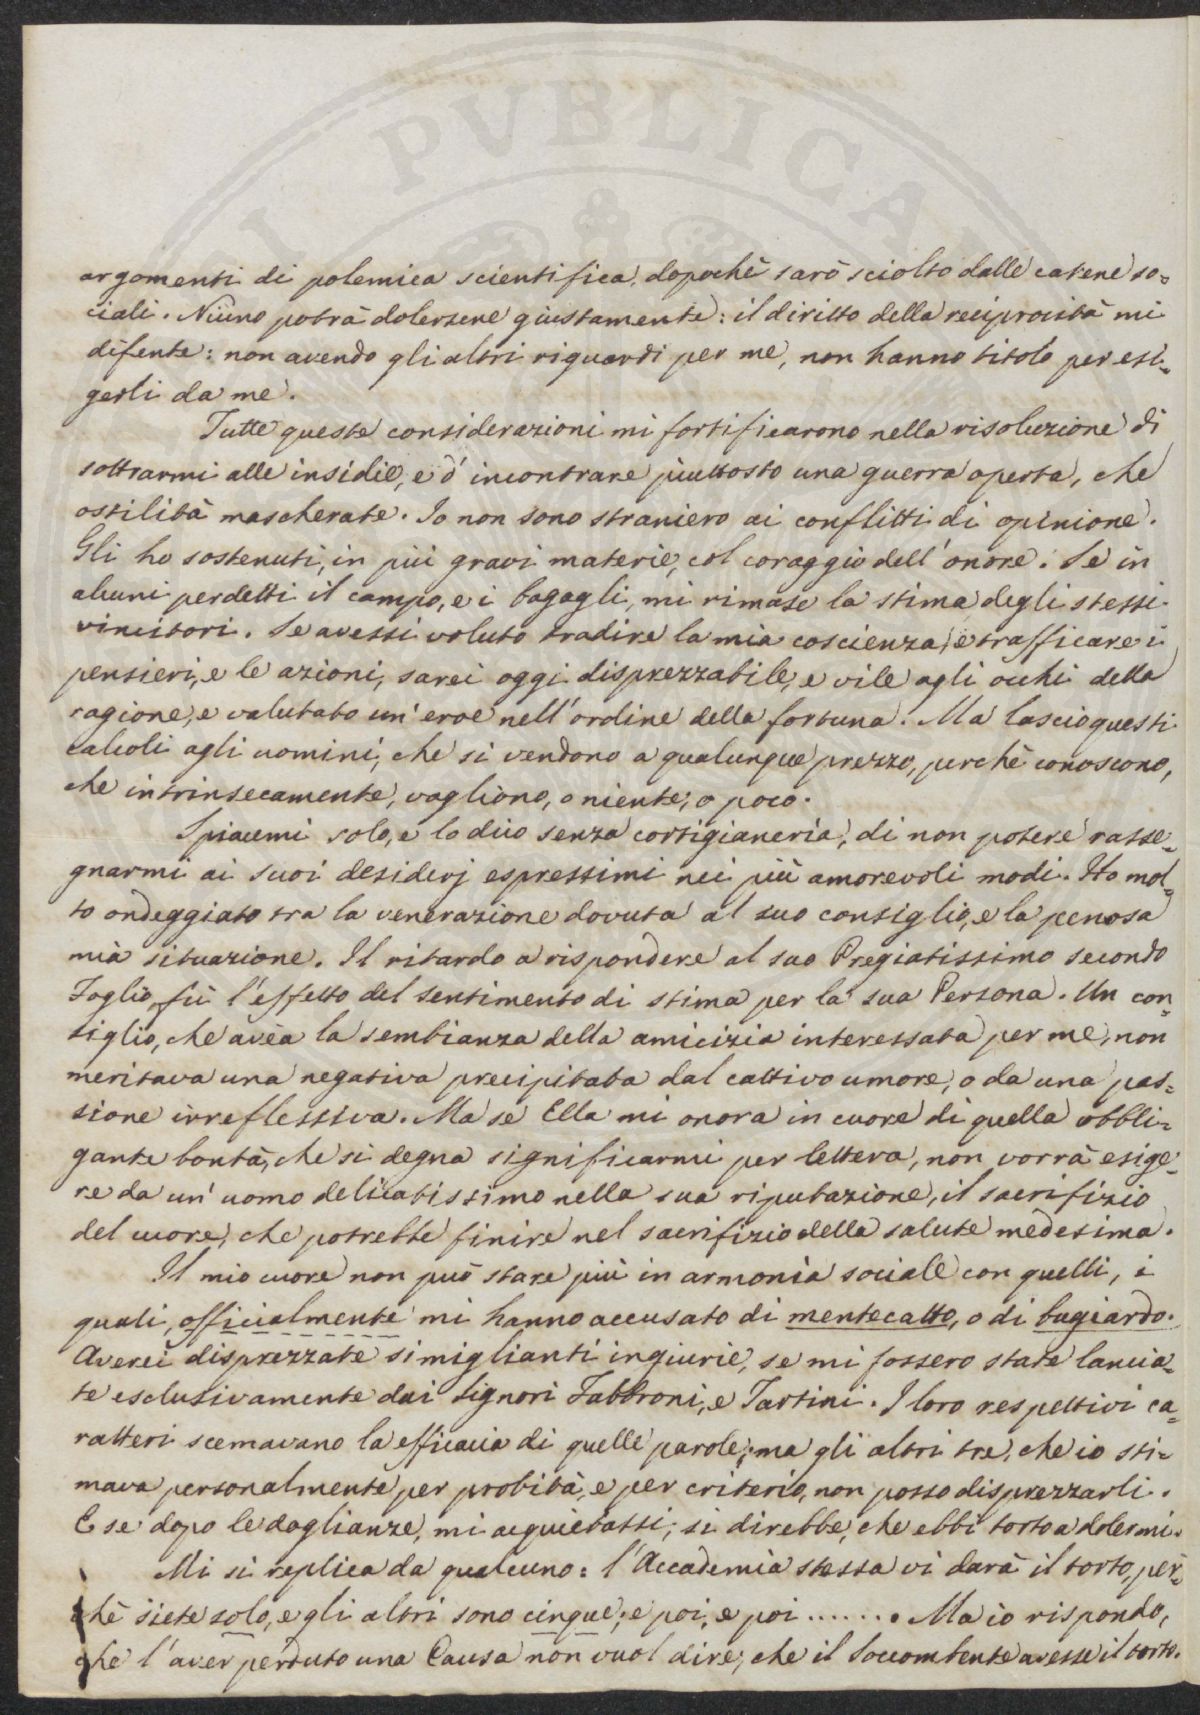 I PVBLICA
argomenti di polemica scientifica, dopochè sarò sciolto dalle catene so=
ciali. Niuno potrà dolersene giustamente: il diritto della reciprocità mi
difente: non avendo gli altri riguardi per me, non hanno titolo per esi=
gerli da me.
Tutte queste considerazioni mi fortificarono nella risoluzione di
sottrarmi alle insidie, e d'incontrare piuttosto una guerra aperta, che
ostilità mascherate. Io non sono straniero ai conflitti di opinione.
Gli ho sostenuti, in più gravi materie, col coraggio dell'onore. Se in
alcuni perdetti il campo, e i bagagli, mi rimase la stima degli stessi
vincitori. Se avessi voluto tradire la mia coscienza, e trafficare i
pensieri, e le azioni, sarei oggi disprezzabile, e vile agli occhi della
ragione, e valutato un'eroe nell'ordine della fortuna. Ma lascio questi
calcoli agli uomini, che si vendono a qualunque prezzo, perchè conoscono,
che intrinsecamente, vagliono, o niente, o poco.
Spiacemi solo, e lo dico senza cortigianeria, di non potere rasse=
gnarmi ai suoi desiderj espressimi nei più amorevoli modi. Ho mol=
to ondeggiato tra la venerazione dovuta al suo consiglio, e la penosa
mia situazione. Il ritardo a rispondere al suo Pregiatissimo secondo
Foglio, fù l'effetto del sentimento di stima per la sua Persona. Un con=
siglio, che avea la sembianza della amicizia interessata per me, non
meritava una negativa precipitata dal cattivo umore, o da una pas=
sione irreflessiva. Ma se Ella mi onora in cuore di quella obbli=
gante bontà, che si degna significarmi per lettera, non vorrà esige=
re da un'uomo delicatissimo nella sua riputazione, il sacrifizio
del cuore, che potrebbe finire nel sacrifizio della salute medesima.
Il mio cuore non può stare più in armonia sociale con quelli, i
quali, officialmente mi hanno accusato di mentecatto, o di bugiardo.
Averei disprezzate simiglianti ingiurie, se mi fossero state lancia=
te esclusivamente dai Signori Fabbroni, e Tartini. I loro respettivi ca=
ratteri scemavano la efficacia di quelle parole; ma gli altri tre, che io sti=
mava personalmente per probità, e per criterio, non posso disprezzarli.
E se dopo le doglianze, mi acquietassi, si direbbe, che ebbi torto a dolermi.
Mi si replica da qualcuno: l'Accademia stessa vi darà il torto, per=
chè siete solo, e gli altri sono cinque; e poi, e poi ....... Ma io rispondo,
che l'aver perduto una Causa non vuol dire, che il Soccombente avesse il torto.